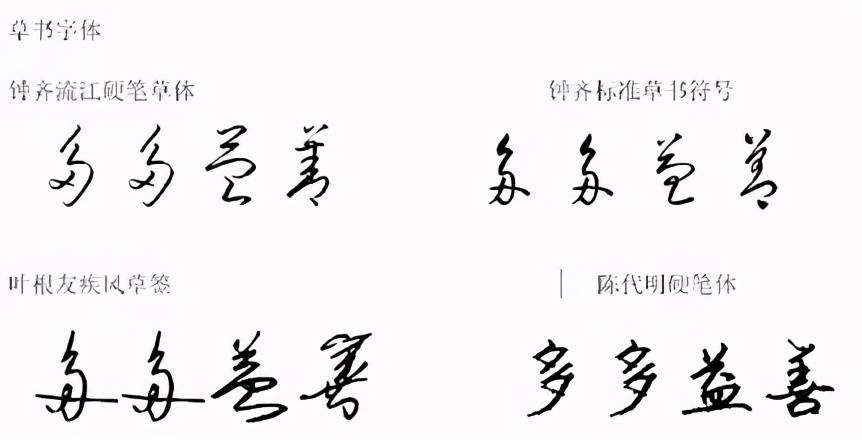 草书字体
钟齐流江硬笔草体
钟齐标准草书符号
多多益善
多多益善
叶根友疾风草签
陈代明硬笔体
多多益善
多多益善